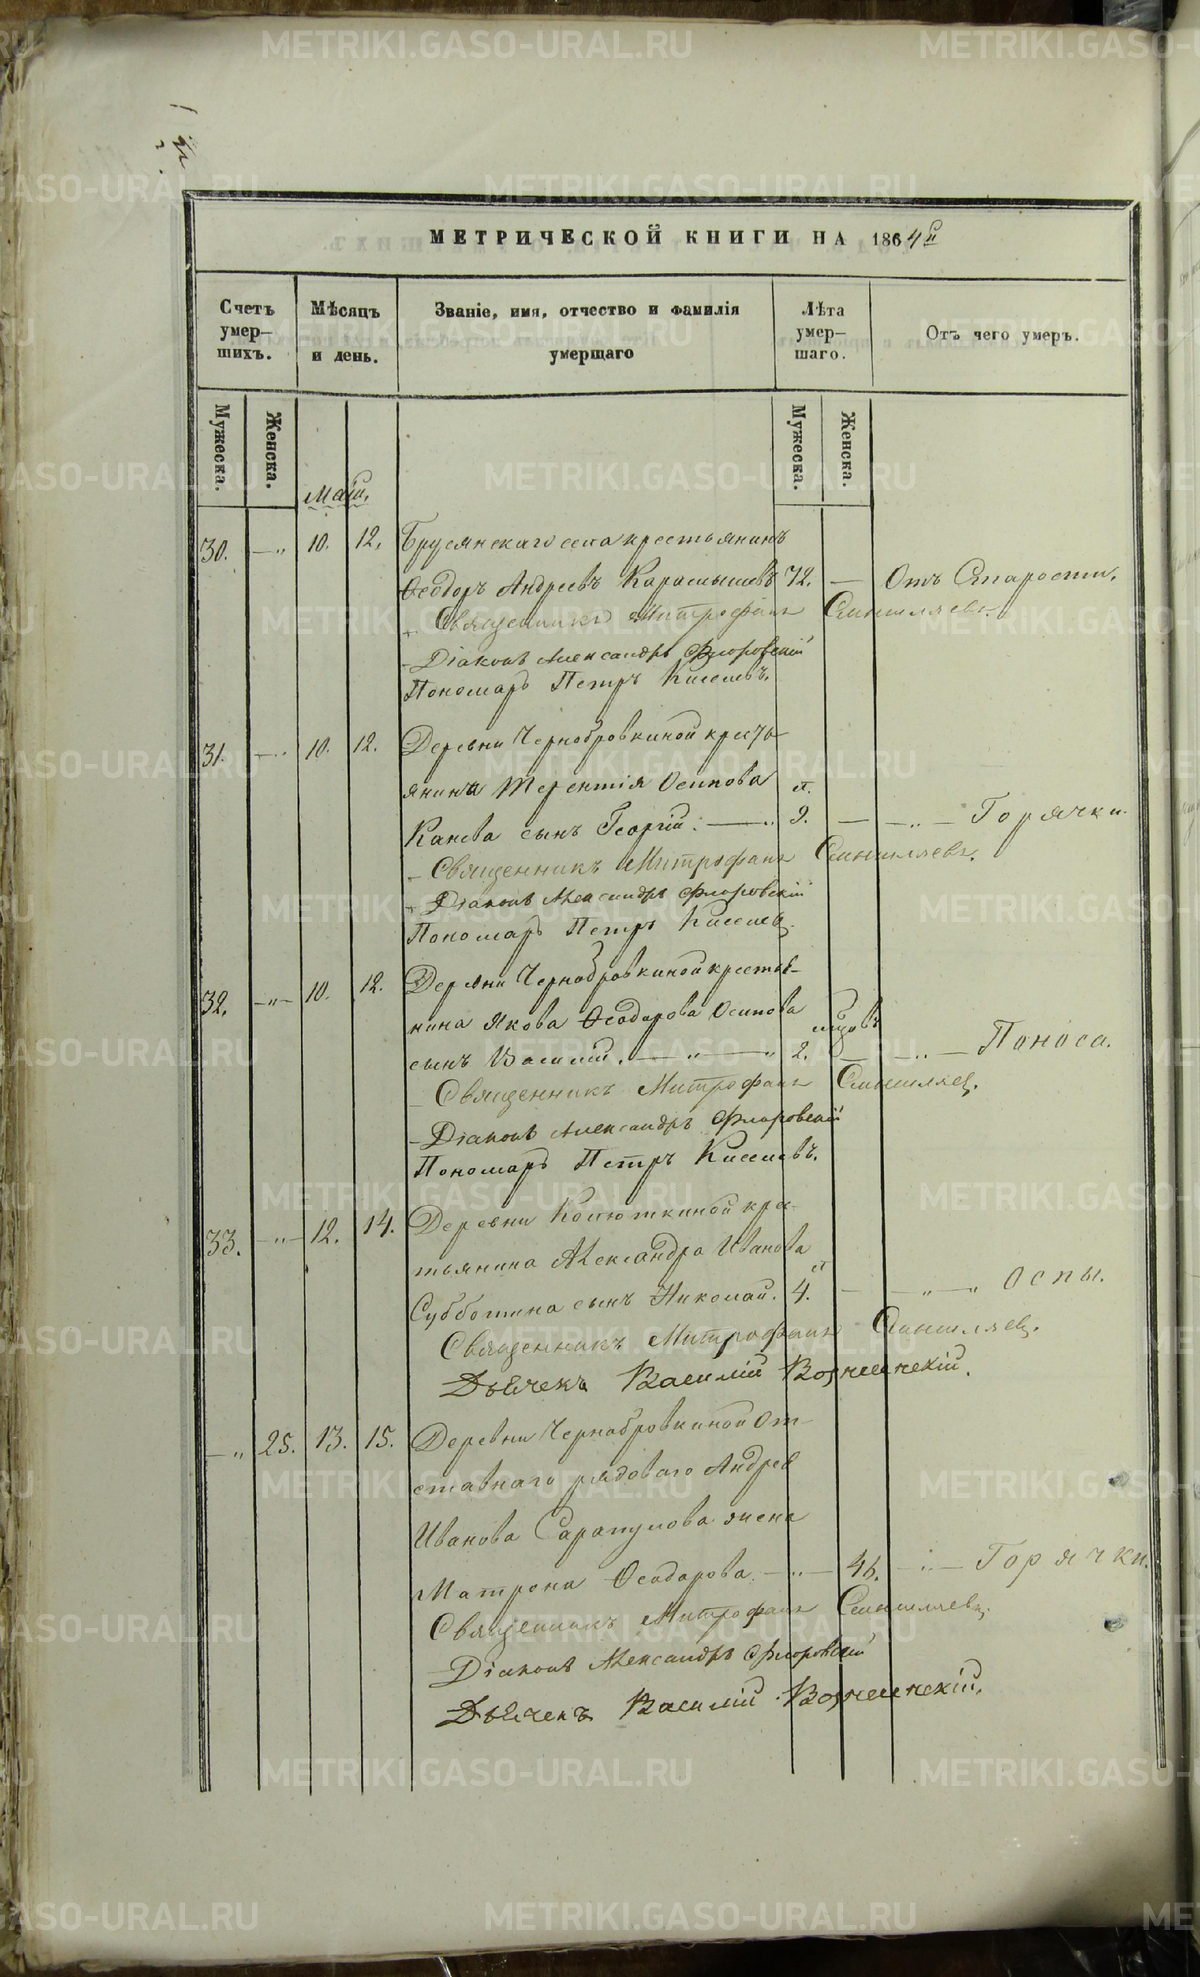 МЕТРИЧЕСКОЙ КНИГИ НА 1864й
Счетъ умер-шихъ.
Мѣсяцъ и день.
Званіе, имя, отчество и фамилія умершаго
Лѣта умер-шаго.
Отъ чего умеръ.
Мужеска.
Женска.
Мужеска.
Женска.
Маій.
30. — 10. 12. Брусянскаго села крестьянинъ
Ѳеодоръ Андреевъ Карамышевъ 72. — Отъ Старости.
Священникъ Митрофанъ
Діаконъ Александръ Флоровскій
Пономарь Петръ Киселевъ.
31. — 10. 12. Деревни Чернобровкиной крестья
янина Терентія Осипова л.
сынъ Георгій. — 9. — Горячки.
Священникъ Митрофанъ
Діаконъ Александръ Флоровскій
Пономарь Петръ Киселев
32. — 10. 12. Деревни Чернобровкиной крестья-
нина Якова Ѳеодорова Осипова
сынъ Василій. — 2. — Поноса.
Священникъ Митрофанъ
Діаконъ Александръ Флоровскій
Пономарь Петръ Киселевъ.
33. — 12. 14. Деревни Колюткиной крес-
тьянина Александра Иванова л
Субботина сынъ Николай. 4. — Оспы.
Священникъ Митрофанъ
Дьячекъ Василій Вознесенскій.
— 25. 13. 15. Деревни Чернобровкиной От-
ставнаго рядоваго Андрея
Иванова Сарапулова жена
Матрона Ѳеодорова. — 46. — Горячки.
Священникъ Митрофанъ
Діаконъ Александръ Флоровскій
Дьячекъ Василій Вознесенскій.
METRIKI.GASO-URAL.RU